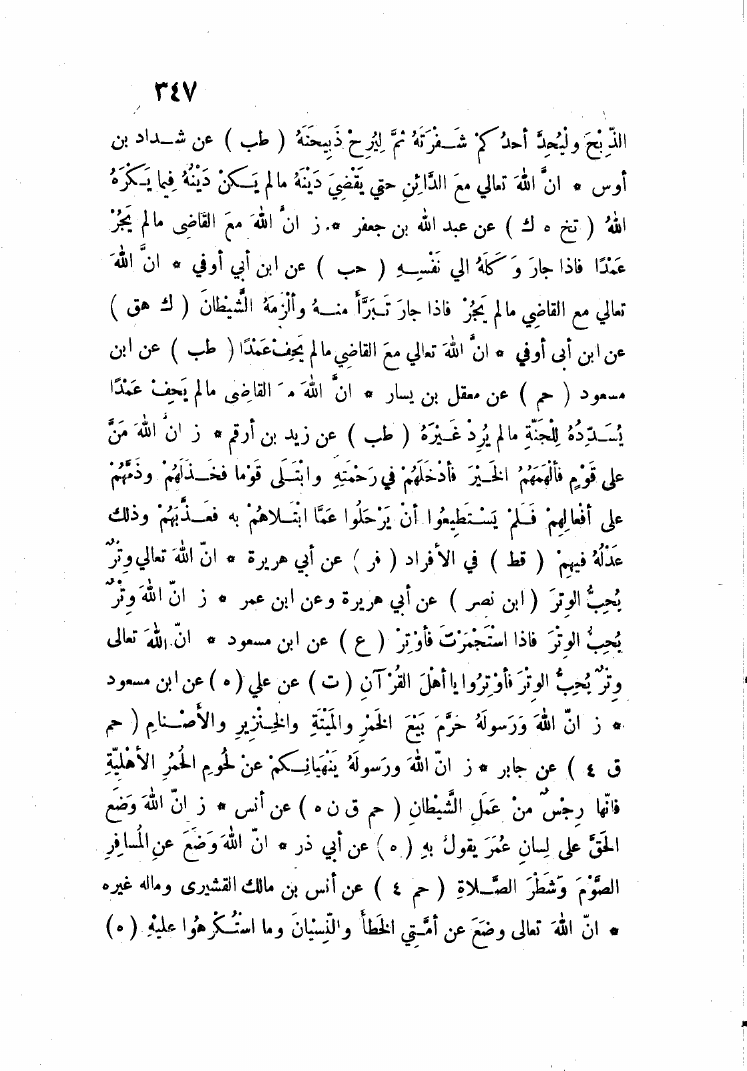 ٣٤٧
الذِّبْحَ ولْيُحِدَّ أحدُكمْ شَفْرَتَهُ ثمَّ لِيُرِحْ ذَبِيحَتَهُ ( طب ) عن شداد بن
أوس * انَّ اللهَ تعالي معَ الدَّائِنِ حتي يَقْضِيَ دَيْنَهُ مالم يَكنْ دَيْنُهُ فِيما يَكْرَهُ
اللهُ ( تخ ه ك ) عن عبد الله بن جعفر * ز انَّ اللهَ معَ القاضى مالم يَجُرْ
عَمْدًا فاذا جارَ وَكَلَهُ الي نَفْسِهِ ( حب ) عن ابن أبي أوفي * انَّ اللهَ
تعالي مع القاضي مالم يَجُرْ فاذا جارَ تَبَرَّأَ منهُ وألْزَمَهُ الشَّيْطانَ ( ك هق )
عن ابن أبى أوفي * انَّ اللهَ تعالي معَ القاضي مالم يَحِفْ عَمْدًا ( طب ) عن ابن
مسعود ( حم ) عن معقل بن يسار * انَّ اللهَ مَ القاضى مالم يَحِفْ عَمْدًا
يُسَدِّدُهُ لِلْجَنَّةِ مالم يُرِدْ غَيْرَهُ ( طب ) عن زيد بن أرقم * ز انَّ اللهَ مَنَّ
على قَوْمٍ فألْهَمَهُمُ الخَيْرَ فأدْخَلَهُمْ في رَحْمَتِهِ وابْتَلَى قَوْما فخَذَلَهُمْ وذَمَّهُمْ
على أفْعالِهِمْ فَلَمْ يَسْتَطِيعُوا أنْ يَرْحَلُوا عَمَّا ابْتَلاهُمْ به فعَذَّبَهُمْ وذلك
عَدْلُهُ فيهِمْ ( قط ) في الأفراد ( فر ) عن أبي هريرة * انّ اللهَ تعالي وتْرٌ
يُحِبُّ الوِترَ ( ابن نصر ) عن أبي هريرة وعن ابن عمر * ز انّ اللهَ وِتْرٌ
يُحِبُّ الوِتْرَ فاذا اسْتَجْمَرْتَ فأوْتِرْ ( ع ) عن ابن مسعود * انّ اللهَ تعالى
وِترٌ يُحِبُّ الوِترَ فأوْتِرُوا ياأهْلَ القُرْآنِ ( ت ) عن علي ( ه ) عن ابن مسعود
* ز انّ اللهَ وَرَسولَهُ حَرَّمَ بَيْعَ الخَمْرِ والمَيْتَةِ والخِنْزِيرِ والأصْنامِ ( حم
ق ٤ ) عن جابر * ز انّ اللهَ ورسولَهُ يَنْهَيانِكمْ عنْ لُحومِ الحُمُرِ الأهْلِيَّةِ
فانّها رِجْسٌ منْ عَمَلِ الشَّيْطانِ ( حم ق ن ه ) عن أنس * ز انّ اللهَ وَضَعَ
الحَقَّ على لِسانِ عُمَرَ يقولُ بهِ ( ه ) عن أبي ذر * انّ اللهَ وَضَعَ عنِ المُسافِرِ
الصَّوْمَ وشَطْرَ الصَّلاةِ ( حم ٤ ) عن أنس بن مالك القشيرى وماله غيره
* انّ اللهَ تعالى وضَعَ عن أمَّتِي الخَطأَ والنِّسْيانَ وما اسْتُكْرِهُوا عليْهِ ( ه )